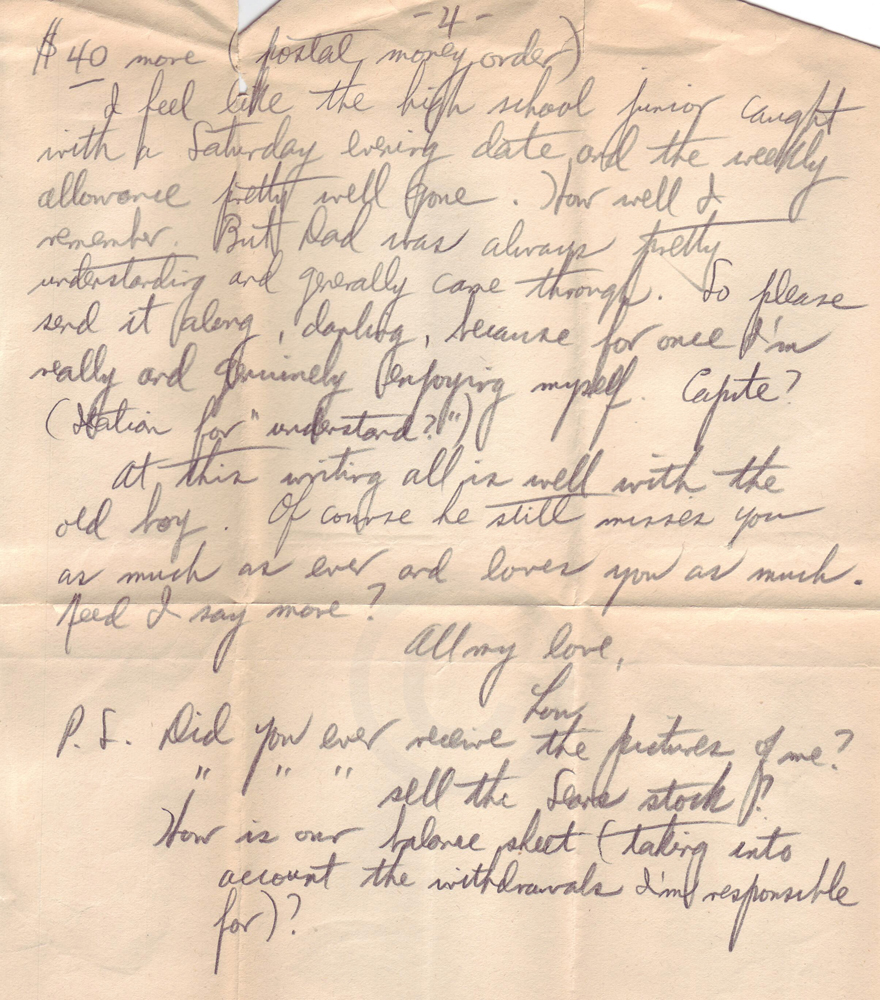 -4-
$40 more (postal money order)
I feel like the high school junior caught
with a Saturday evening date and the weekly
allowance pretty well gone. How well I
remember. But Dad was always pretty
understanding and generally came through. So please
send it along, darling, because for once I'm
really and genuinely enjoying myself. Capite?
(Italian for "understand?")
At this writing all is well with the
old boy. Of course he still misses you
as much as ever and loves you as much.
Need I say more?
All my love,
Lou
P.S. Did you ever receive the pictures of me?
" " " sell the Sears stock?
How is our balance sheet (taking into
account the withdrawals I'm responsible
for)?